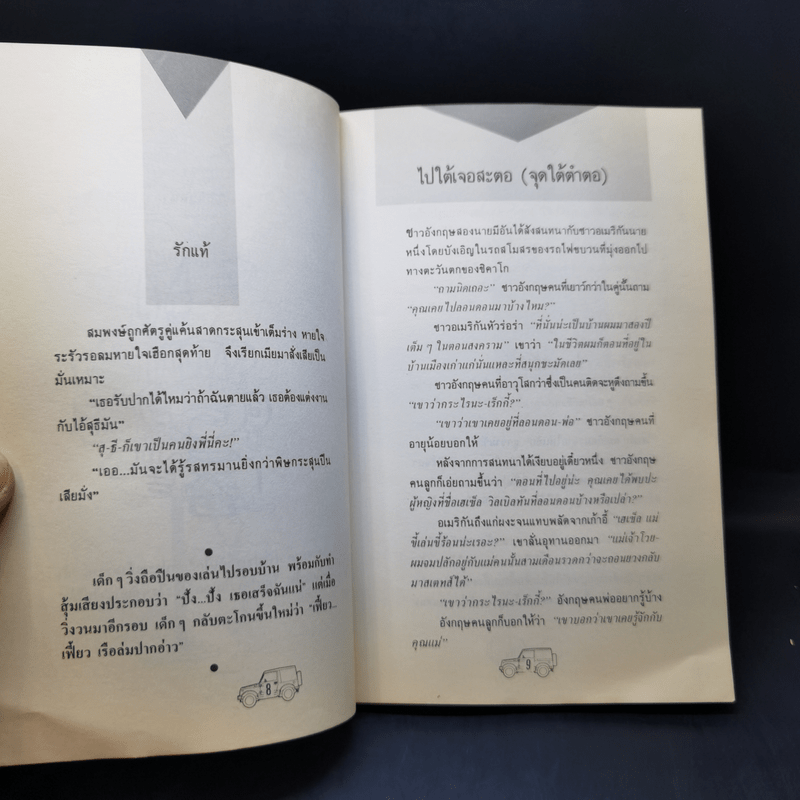 รักแท้
สมพงษ์ถูกศัตรูคู่แค้นสาดกระสุนเข้าเต็มร่าง หายใจ
ระรัวรอลมหายใจเฮือกสุดท้าย จึงเรียกเมียมาสั่งเสียเป็น
มั่นเหมาะ
"เธอรับปากได้ไหมว่าถ้าฉันตายแล้ว เธอต้องแต่งงาน
กับไอ้สุธีมัน"
"สุ-ธี-ก็เขาเป็นคนยิงพี่นี่คะ!"
"เออ...มันจะได้รู้รสทรมานยิ่งกว่าพิษกระสุนปืน
เสียมั่ง"
เด็กๆ วิ่งถือปืนของเล่นไปรอบบ้าน พร้อมกับทำ
สุ้มเสียงประกอบว่า "ปั้ง...ปั้ง เธอเสร็จฉันแน่" แต่เมื่อ
วิ่งวนมาอีกรอบ เด็กๆ กลับตะโกนขึ้นใหม่ว่า "เฟี้ยว..
เฟี้ยว เรือล่มปากอ่าว"
8
ไปใต้เจอสะตอ (จุดใต้ตำตอ)
ชาวอังกฤษสองนายมีอันได้สังสนทนากับชาวอเมริกันนาย
หนึ่งโดยบังเอิญในรถสโมสรของรถไฟขบวนที่มุ่งออกไป
ทางตะวันตกของชิคาโก
"ถามนิดเถอะ" ชาวอังกฤษคนที่เยาว์กว่าในคู่นั้นถาม
"คุณเคยไปลอนดอนมาบ้างไหม?"
ชาวอเมริกันหัวร่อร่า "ที่นั่นน่ะเป็นบ้านผมมาสองปี
เต็มๆ ในตอนสงคราม" เขาว่า "ในชีวิตผมก็ตอนที่อยู่ใน
บ้านเมืองเก่าแก่นั่นแหละที่สนุกชะมัดเลย"
ชาวอังกฤษคนที่อาวุโสกว่าซึ่งเป็นคนติดจะหูตึงถามขึ้น
"เขาว่ากระไรนะ-เร็กกี้?"
"เขาว่าเขาเคยอยู่ที่ลอนดอน-พ่อ" ชาวอังกฤษคนที่
อายุน้อยบอกให้
หลังจากการสนทนาได้เงียบอยู่เดี๋ยวหนึ่ง ชาวอังกฤษ
คนลูกก็เอ่ยถามขึ้นว่า "ตอนที่ไปอยู่น่ะ คุณเคยได้พบปะ
ผู้หญิงที่ชื่อเฮเซ็ล วิลเบิลทันที่ลอนดอนบ้างหรือเปล่า?"
อเมริกันถึงแก่ผงะจนแทบพลัดจากเก้าอี้ "เฮเซ็ล แม่
ขี้เล่นขี้ร้อนน่ะเรอะ?" เขาลั่นอุทานออกมา "แม่เจ้าโวย-
ผมจมปลักอยู่กับแม่คนนั้นสามเดือนรวดกว่าจะถอนยวงกลับ
มาสเตทส์ได้"
"เขาว่ากระไรนะ-เร็กกี้?" อังกฤษคนพ่ออยากรู้บ้าง
อังกฤษคนลูกก็บอกให้ว่า "เขาบอกว่าเขาเคยรู้จักกับ
คุณแม่"
9